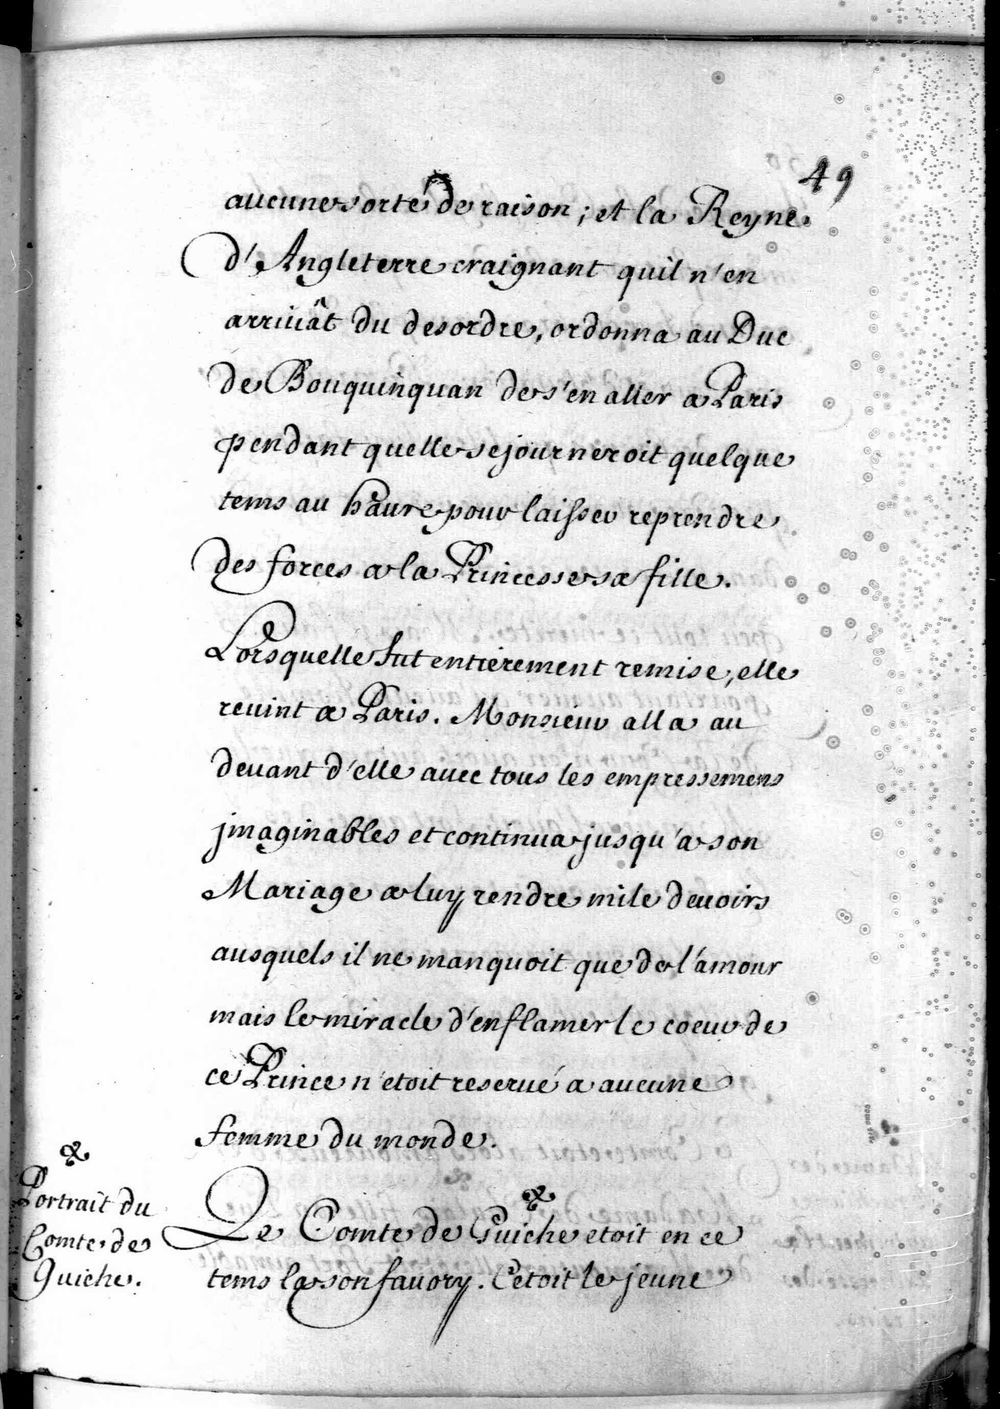 49
aucune sorte de raison; et la Reyne
d'Angleterre craignant quil n'en
arriuât du desordre, ordonna au Duc
de Bouquinquan de s'en aller a Paris
pendant quelle sejourneroit quelque
tems au haure pour laisser reprendre
des forces a la Princesse sa fille.
Lorsquelle fut entierement remise, elle
reuint a Paris. Monsieur alla au
deuant d'elle auec tous les empressemens
jmaginables et continua jusqu'a son
Mariage a luy rendre mile deuoirs
ausquels il ne manquoit que de l'amour
mais le miracle d'enflamer le coeur de
ce Prince n'etoit reserué a aucune
femme du monde.
Portrait du
Comte de
Guiche.
Le Comte de Guiche etoit en ce
tems la son fauory. C'etoit le jeune